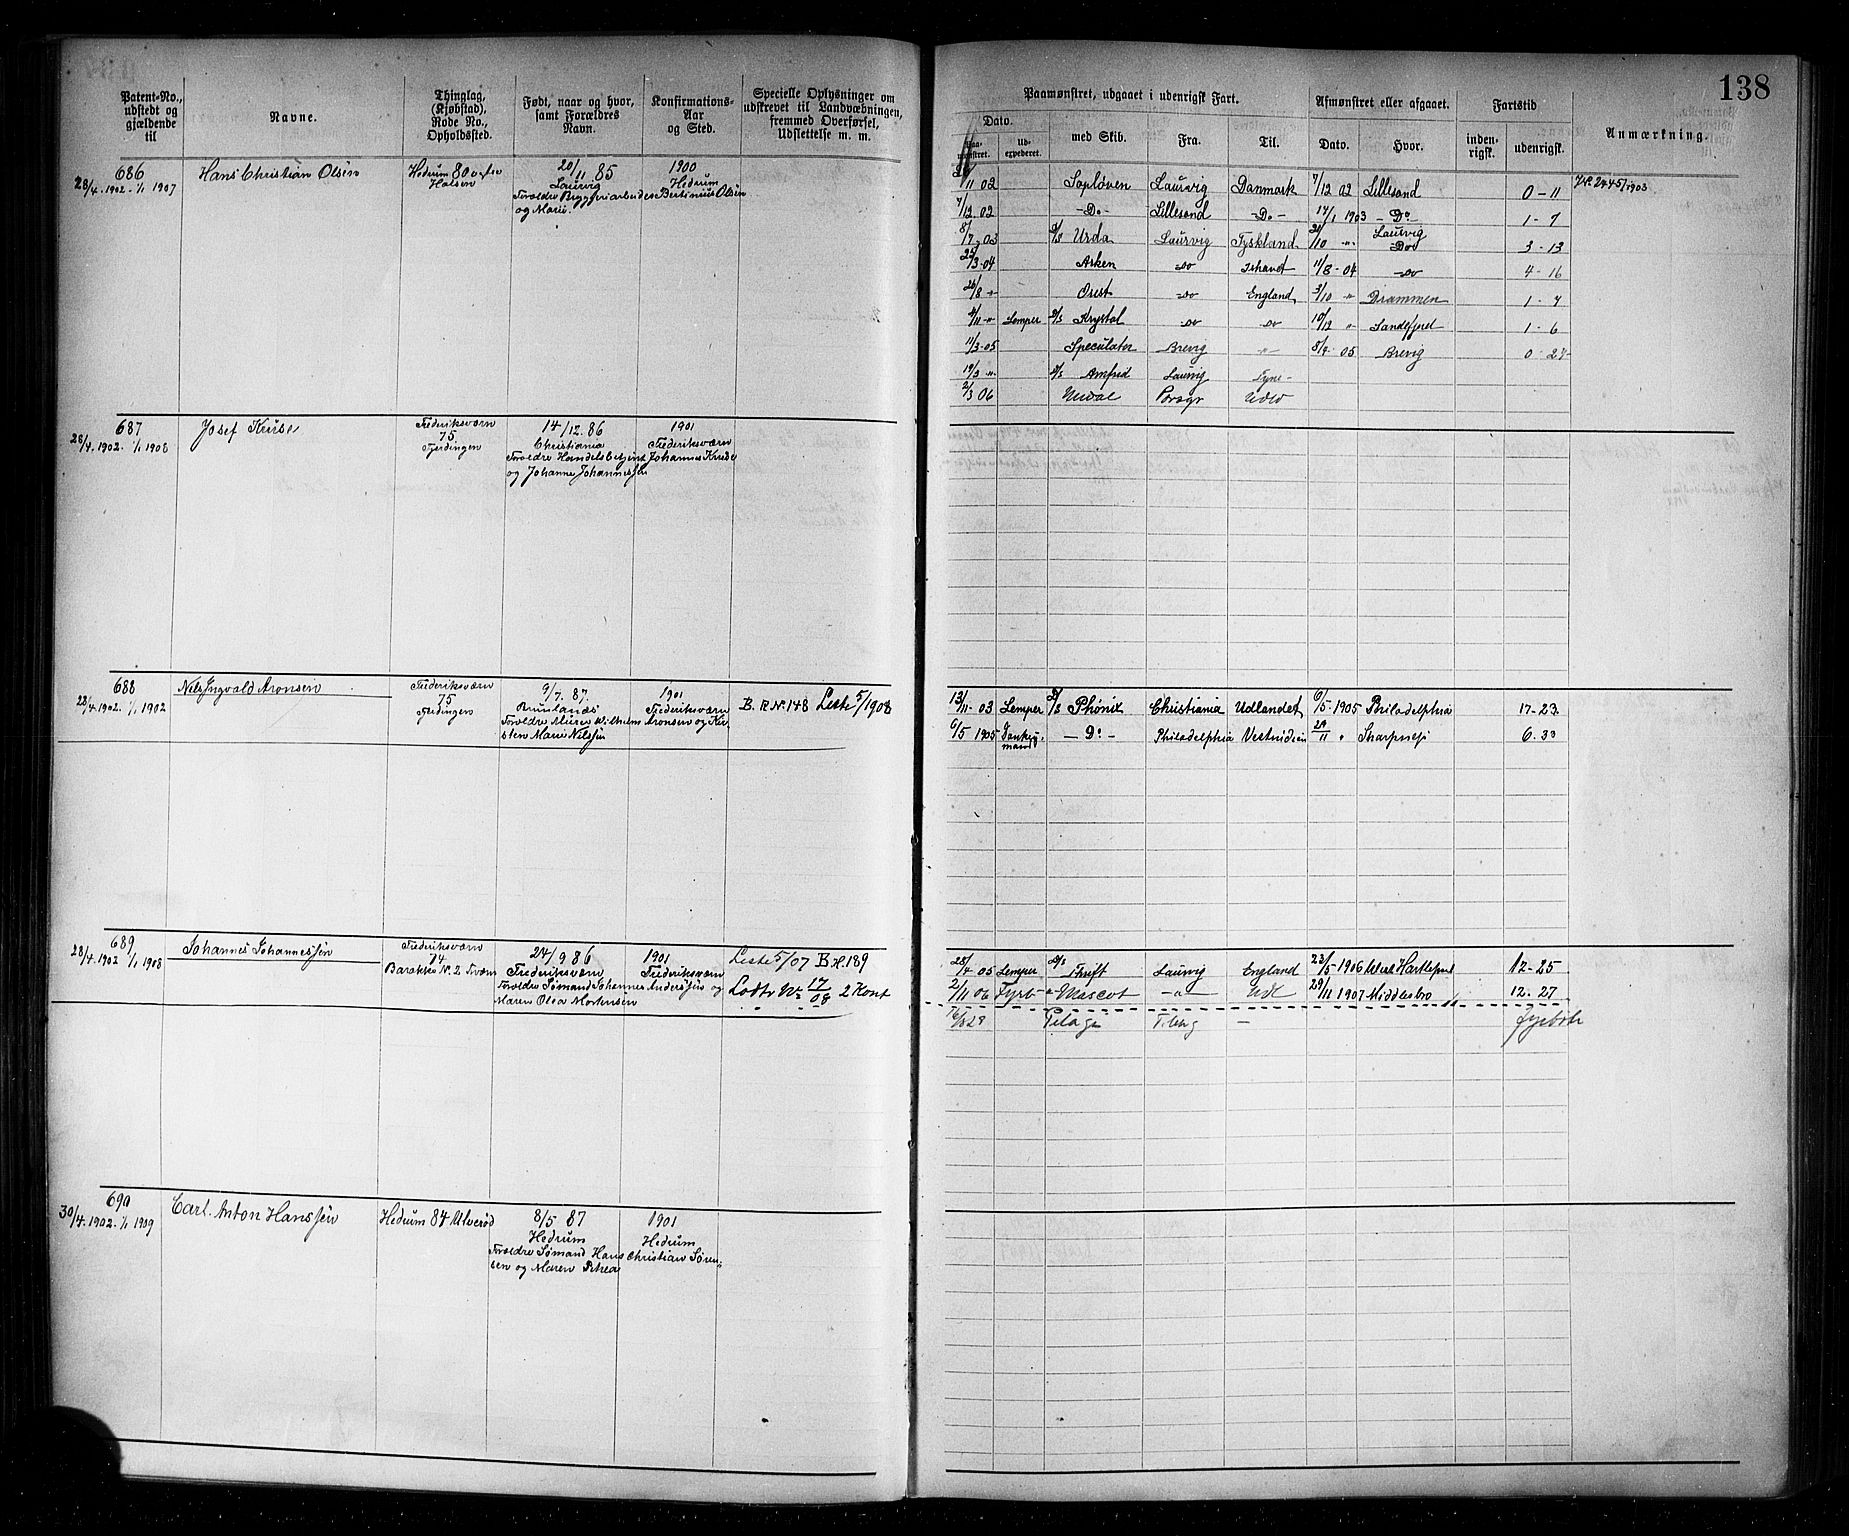 138
Patent-No., udstedt og gjældende til
Navne.
Thinglag, (Kjøbstad), Rode No., Opholdssted.
Født, naar og hvor, samt Forældres Navn.
Konfirmations-Aar og Sted.
Specielle Oplysninger om udskrevet til Landværbningen, fremmed Overførsel, Udslettelse m. m.
Paamønstret, udgaaet i udenrigsk Fart.
Dato.
Paa-mønstret.
Ud-expederet.
med Skib.
Fra.
Til.
Afmønstret eller afgaaet.
Dato.
Hvor.
Fartstid
inden-rigsk.
udenrigsk.
Anmærkning.
686
28/4.1902-1/1 1907
Hans Christian Olsen
Hedrum 80
Halsen
20/11 85
Laurvig
Forældre Bryggeriarbeider Bertinius Olsen
og Marie.
1900
Hedrum
11 02 Sopløven Laurvig Danmark 7/12 02 Lillesand 0-11
7/12 02 -Do- Lillesand -Do- 14/1 1903 -Do- 1-7
8/7 03 Urda Laurvig Tyskland 21/10 " Laurvig 3-13
25/3-04 Asken -"- Ishavet 11/8-04 -"- 4-16
26/8 " Ørest -"- England 3/10 " Drammen 1-7
/11 " Lemper Krystal -"- -"- 10/12 " Sandefjord 1-6
11/3-05 Speculator Brevig -"- 8/4 05 Brevig 0-27
19/3 " Amfrid Laurvig Tyne
2/3 06 Porsgr Udld
687
28/4.1902-1/1 1908
Josef Kruse
Frederiksværn
75
Fjerdingen
14/12.86
Christiania
Forældre Handelsbetjent Johannes Kruse
og Johanne Johannessen
1901
Frederiksværn
688
28/4.1902.1/1 1902
Nils Ingvald Aronsen
Frederiksværn
75
Fjerdingen
9/7.87.
Brunlanæs
Forældre Murer Wilhelm Aronsen og Kir-
sten Marie Nilssen
1901
Frederiksværn
B. R No 148 Liste 5/1908
13/11-03 Lemper Phønix Christiania Udlandet 6/5-1905 Philadelphia 17-23
6/5 1905 Donkey-mand -Do- Philadelphia Vestindien 29/11 " Sharpness 6.23
689
28/4.1902 1/1 1908
Johannes Johannessen
Frederiksværn
74
Barakke No. 2
24/9 86
Frederiksværn
Forældre Sømand Johannes Anderssen og
Maren Olea Mortensen
1901
Frederiksværn
Liste 5/07 B No. 189
Lodtr No 17/08 2 Kont
28/4 05 Lemper Thrift Laurvig England 23/5-1906 West Hartlepool 12-25
2/11 06 Fyrb " Mascot -"- Udl 29/11 1907 Middlesbro 12.27
Pelagi Tbrg - fyrbøter
690
30/4.1902.1/1 1909
Carl. Anton Hanssen
Hedrum 84 Ulverød
8/5 87
Hedrum
Forældre Sømand Hans Christian Søren-
sen og Maren Petrea
1901
Hedrum